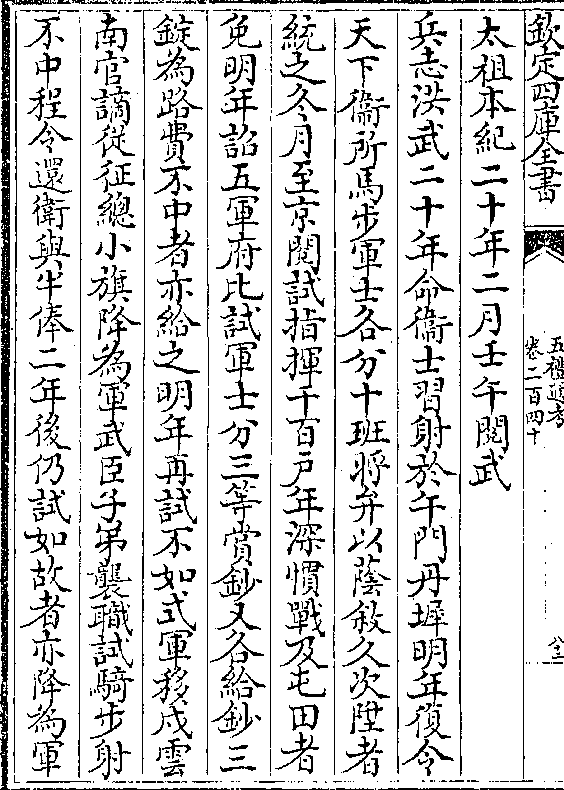 欽定四庫全書
五禮通考
卷二百四十
八十二
太祖本紀二十年二月壬午閱武
兵志洪武二十年命衞士習射於午門丹墀明年復令
天下衞所馬步軍士各分十班將弁以蔭敘久次陞者
統之冬月至京閱試指揮千百戶年深慣戰及屯田者
免明年詔五軍府比試軍士分三等賞鈔又各給鈔三
錠為路費不中者亦給之明年再試不如式軍移戍雲
南官謫從征總小旗降為軍武臣子弟襲職試騎步射
不中程令還衛與半俸二年後仍試如故者亦降為軍